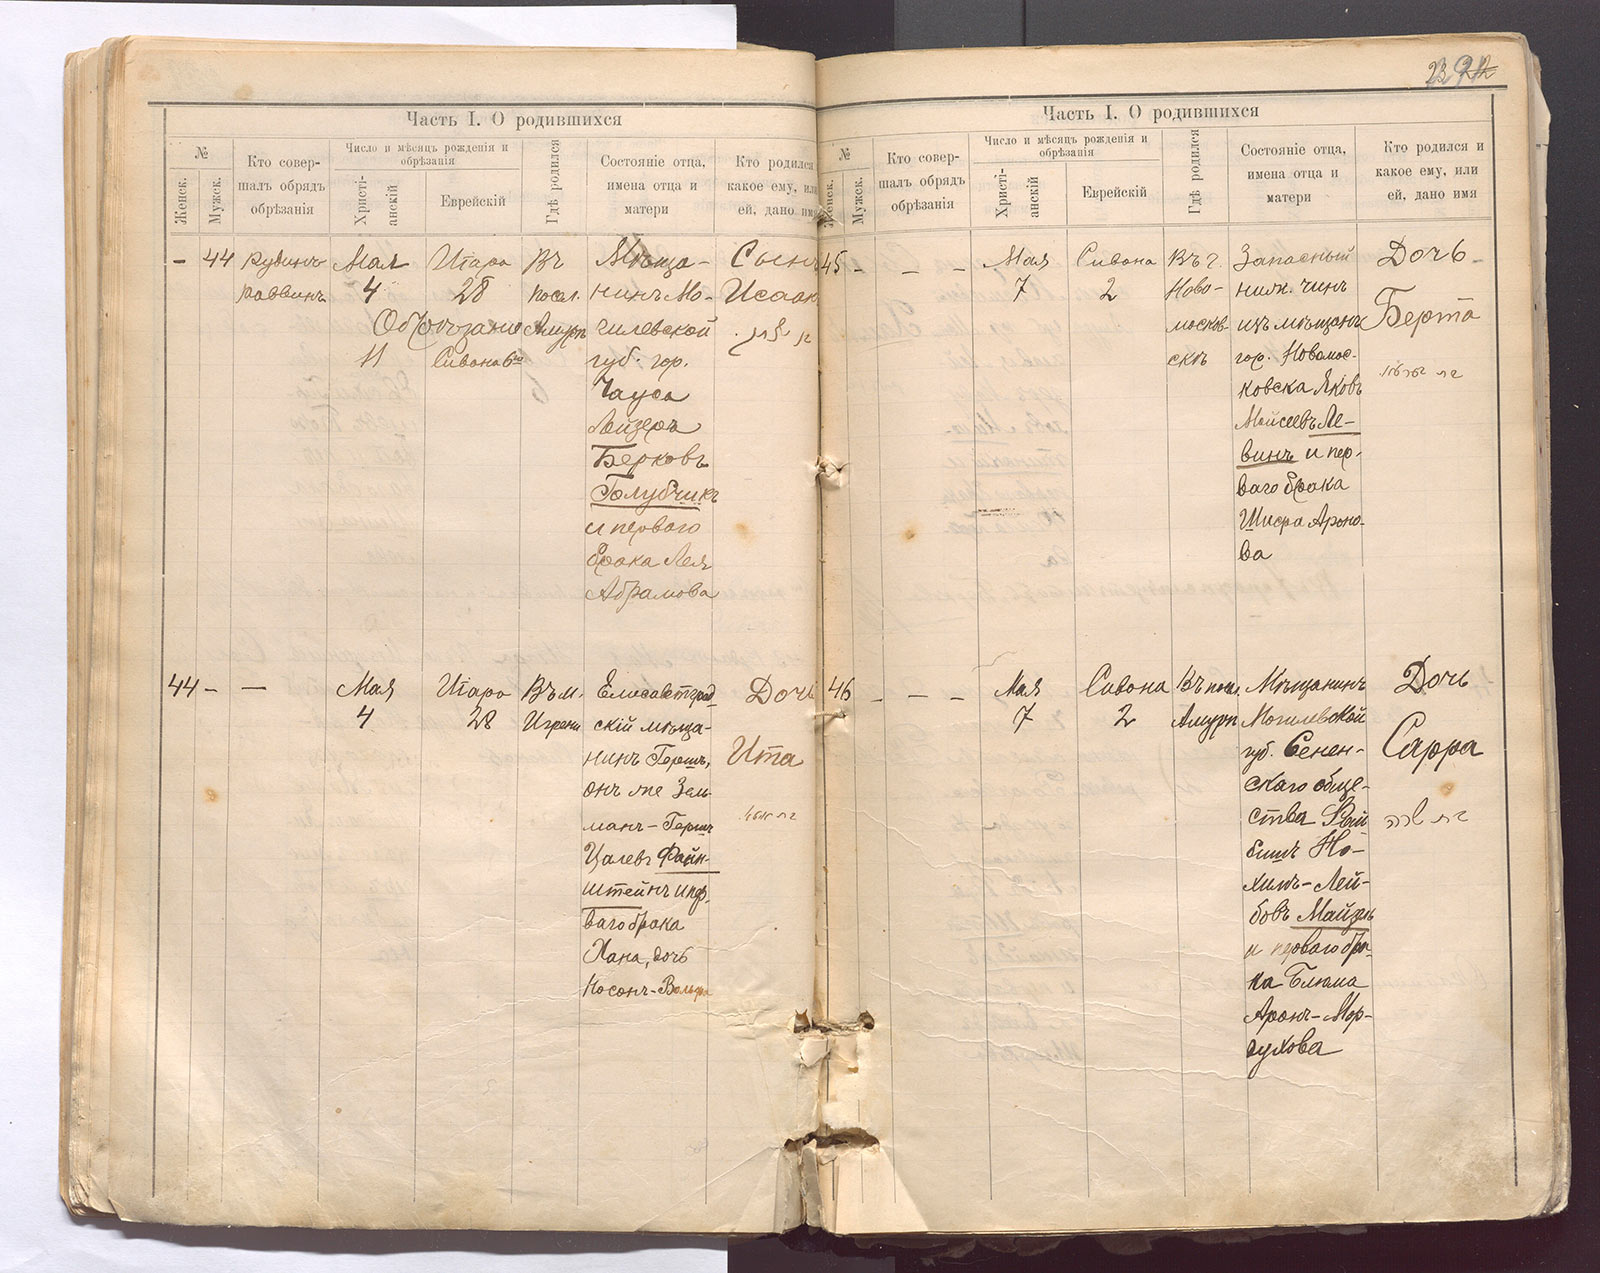 Часть I. О родившихся
№
Женск.
Мужск.
Кто совер-
шалъ обрядъ
обрѣзанія
Число и мѣсяцъ рожденія и
обрѣзанія
Христі-
анскій
Еврейскій
Гдѣ родился
Состояніе отца,
имена отца и
матери
Кто родился
какое ему, или
ей, дано имя
–
44
раввинъ
Мая
4
11
Iiаро
28
Сивона 6го
Въ
посел.
Амурѣ
Мѣща-
нинъ Мо-
гилевской
губ. гор.
Чауса
Лейзеръ
Берковъ
Голубчикъ
и перваго
брака Лея
Абрамова
Сынъ
Исаакъ
44 –
–
Мая
4
Iiаро
28
Въ м.
Игрени
Елисаветград
скій мѣща-
нинъ Гершъ,
онъ же Зель
манъ-Гершъ
Цалевъ Файн-
штейнъ и пер-
ваго брака
Хана, дочь
Носонъ-Вольфа
Дочь
Ита
Часть I. О родившихся
№
Женск.
Мужск.
Кто совер-
шалъ обрядъ
обрѣзанія
Число и мѣсяцъ рожденія и
обрѣзанія
Христі-
анскій
Еврейскій
Гдѣ родился
Состояніе отца,
имена отца и
матери
Кто родился и
какое ему, или
ей, дано имя
45 –
– –
Мая
7
Сивона
2
Въ г.
Ново-
москов-
скѣ
Запасный
нижн. чинъ
изъ мѣщанъ
гор. Новомос-
ковска Яковъ
Мойсеевъ Ле-
винъ и пер-
ваго брака
Шифра Ароно-
ва
Дочь
Берта
46 –
– –
Мая
7
Сивона
2
Въ посел.
Амурѣ
Мѣщанинъ
Могилевской
губ. Сенен-
скаго обще-
ства Фай
бишъ Но-
химъ-Лей-
бовъ Майзель
и перваго бра-
ка Блюма
Аронъ-Мор-
духова
Дочь
Сарра
בת שרה